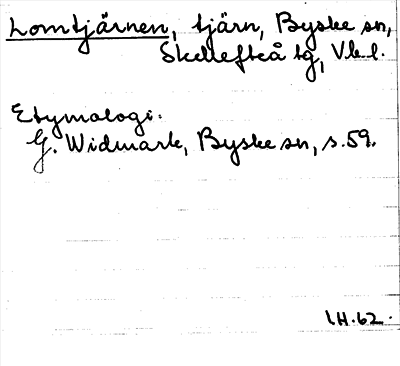 Lomtjärnen, tjärn, Byske sn,
Skellefteå tg, Vb.l.
Etymologi:
G. Widmark, Byske sn, s.59.
IH.62.